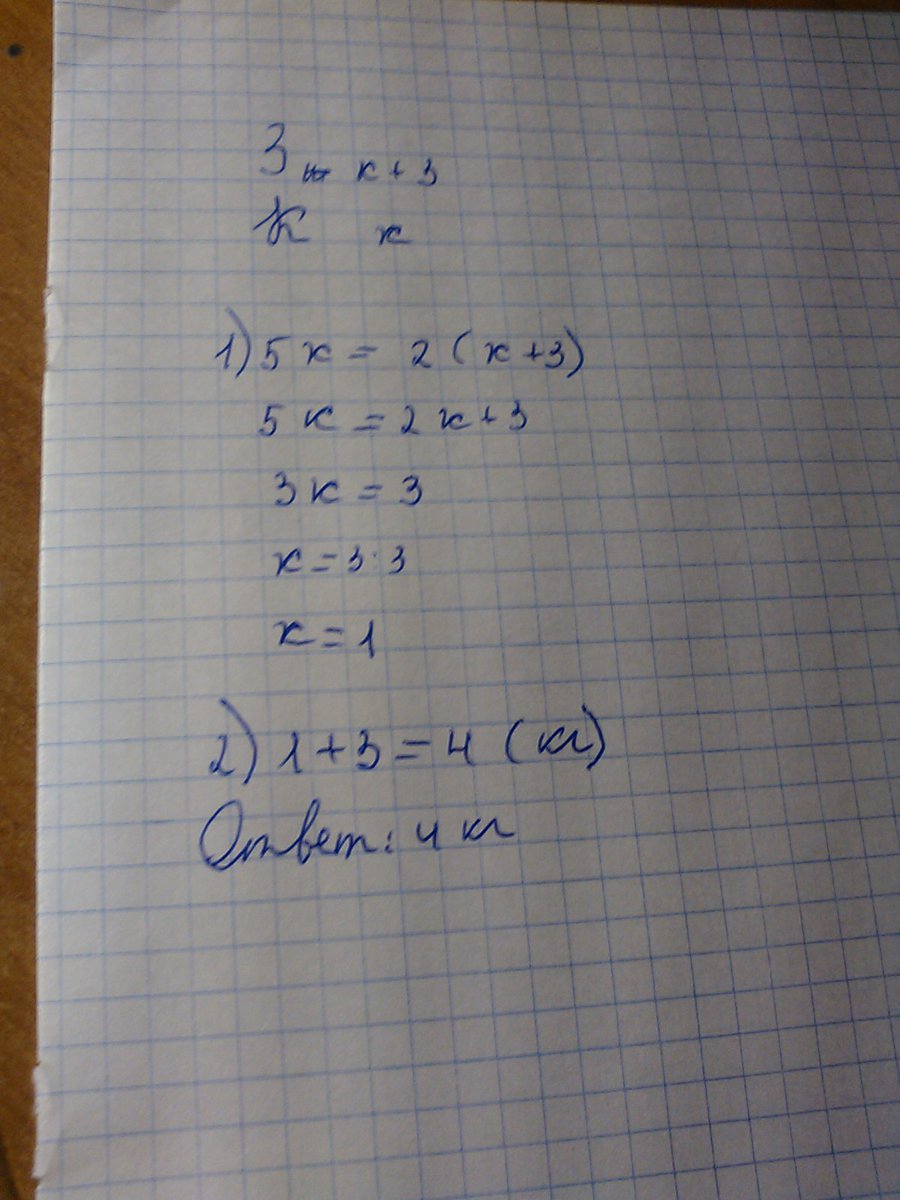 З х + 3
К х
1) 5х = 2 (х + 3)
5х = 2х + 3
3х = 3
х = 3 : 3
х = 1
2) 1 + 3 = 4 (кг)
Ответ: 4 кг